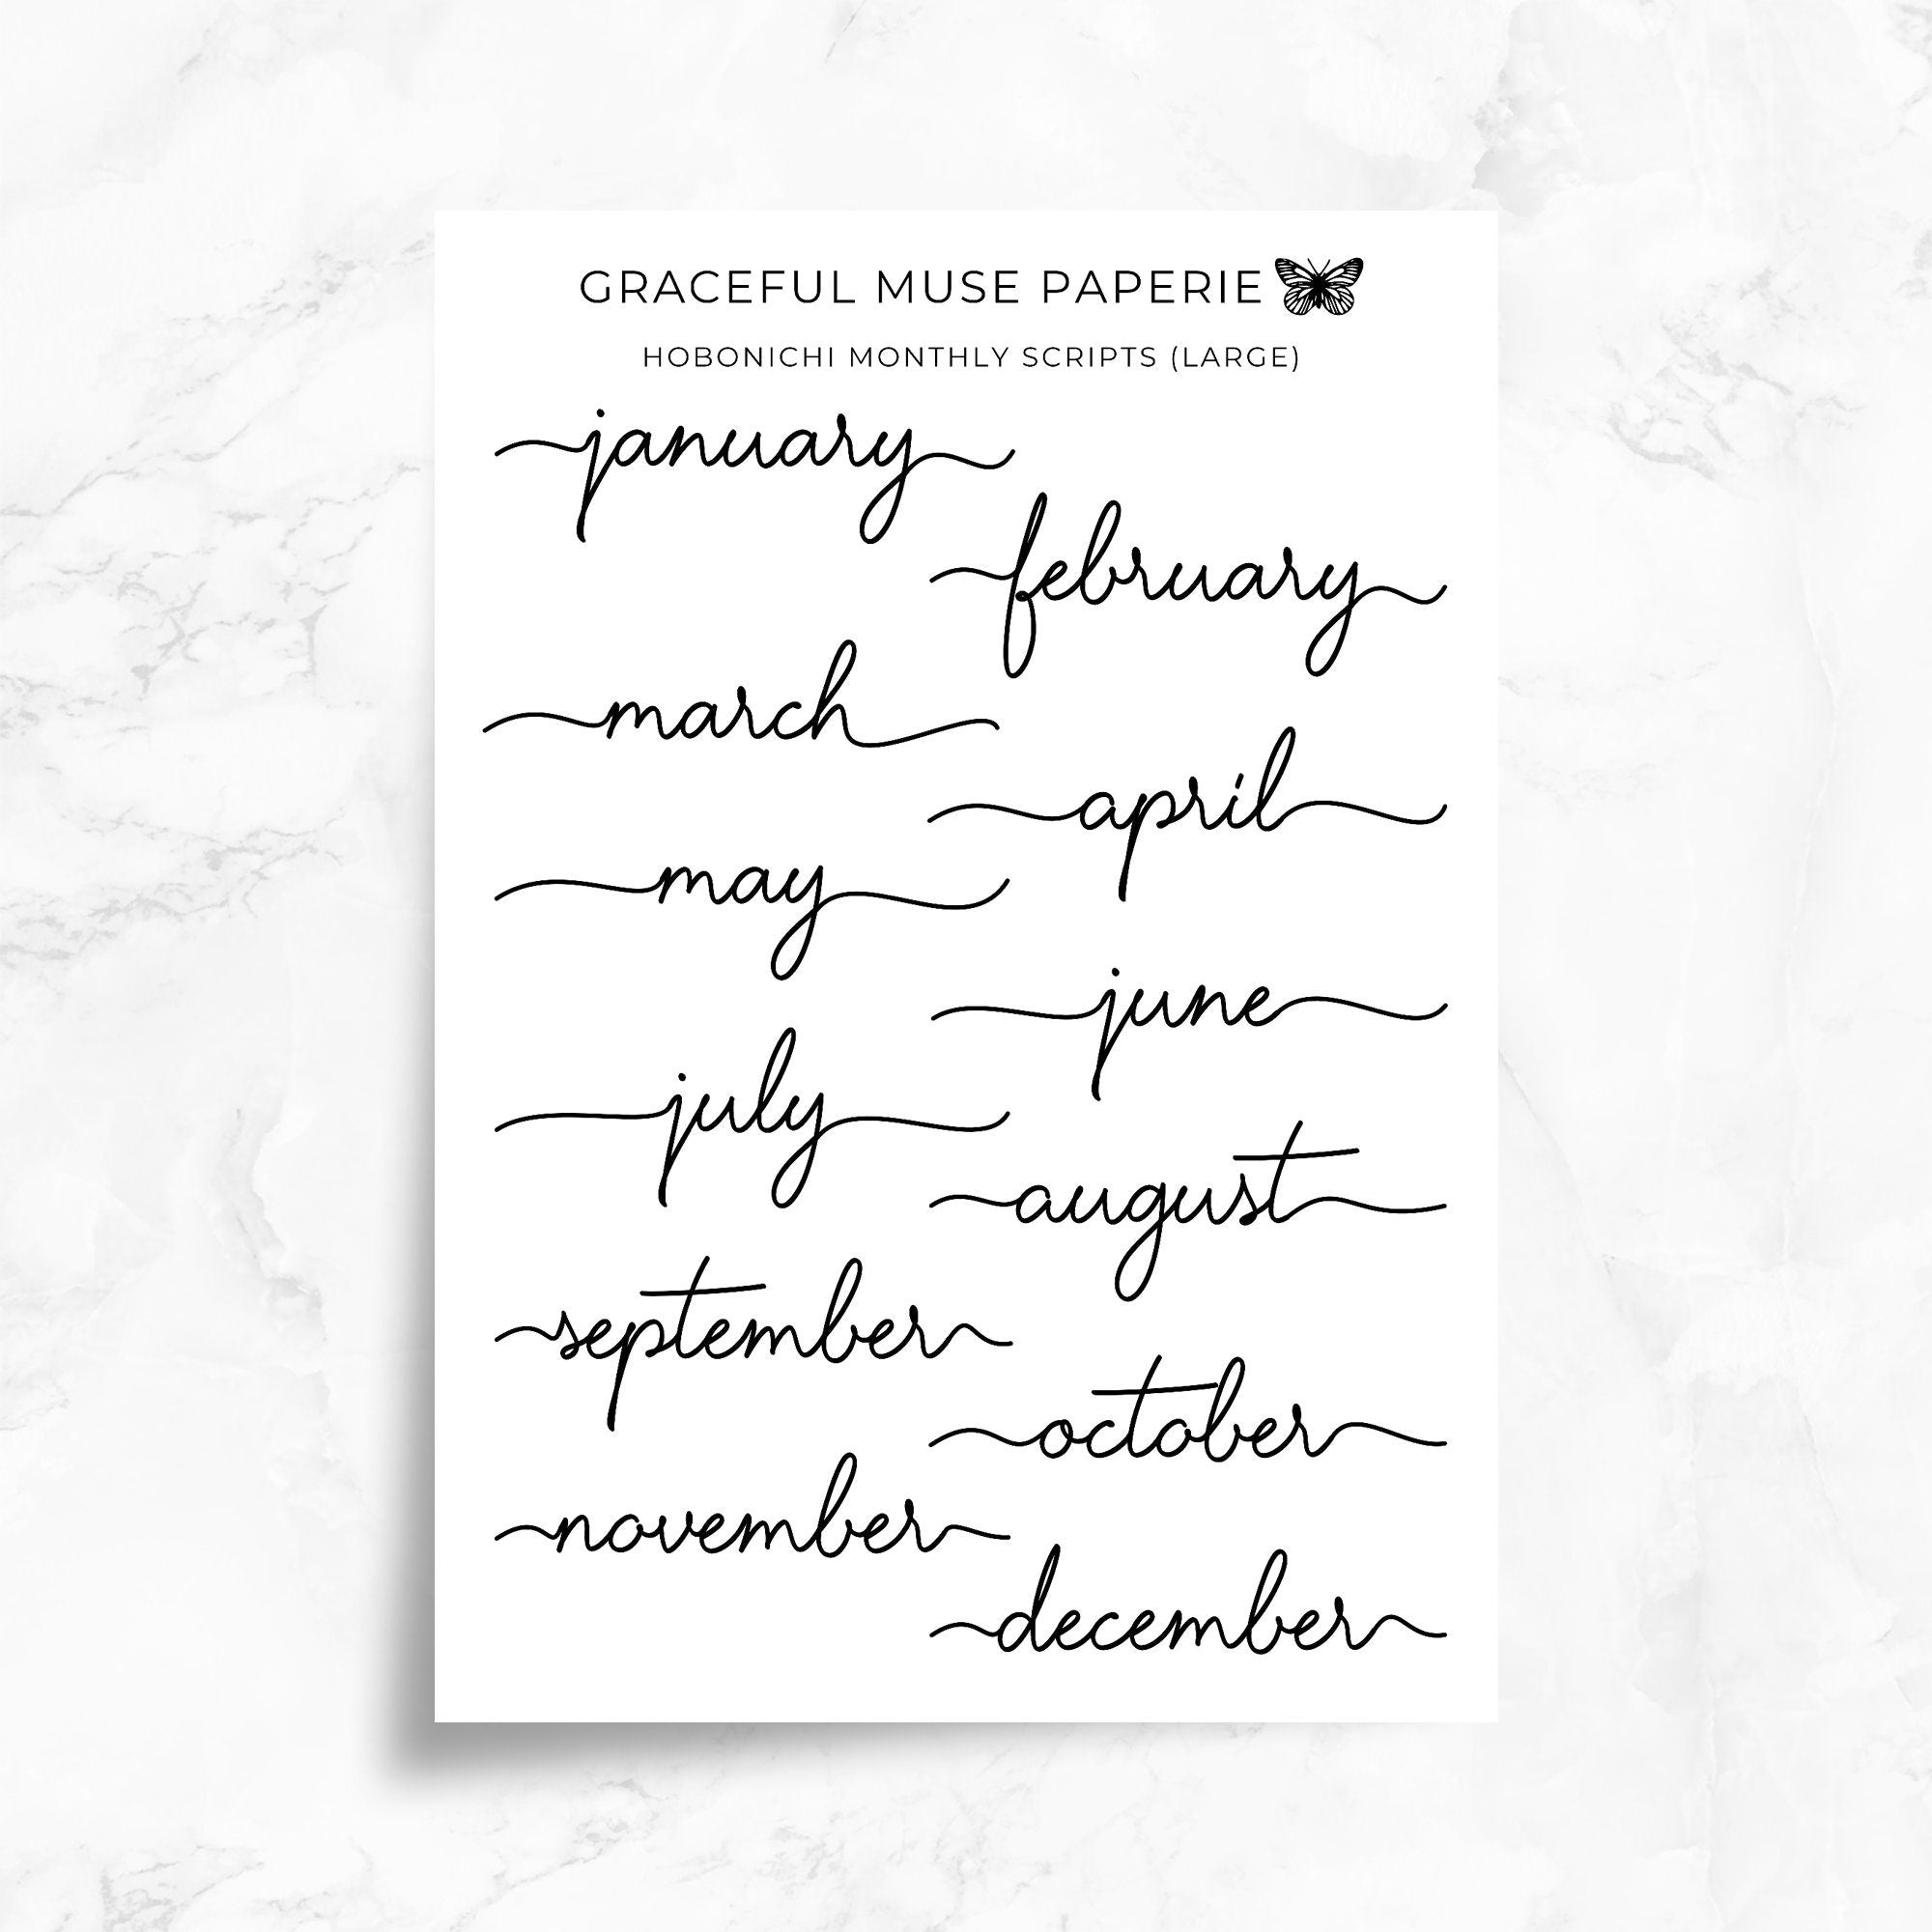 GRACEFUL MUSE PAPERIE
HOBONICHI MONTHLY SCRIPTS (LARGE)
january
february
march
april
may
june
july
august
september
october
november
december